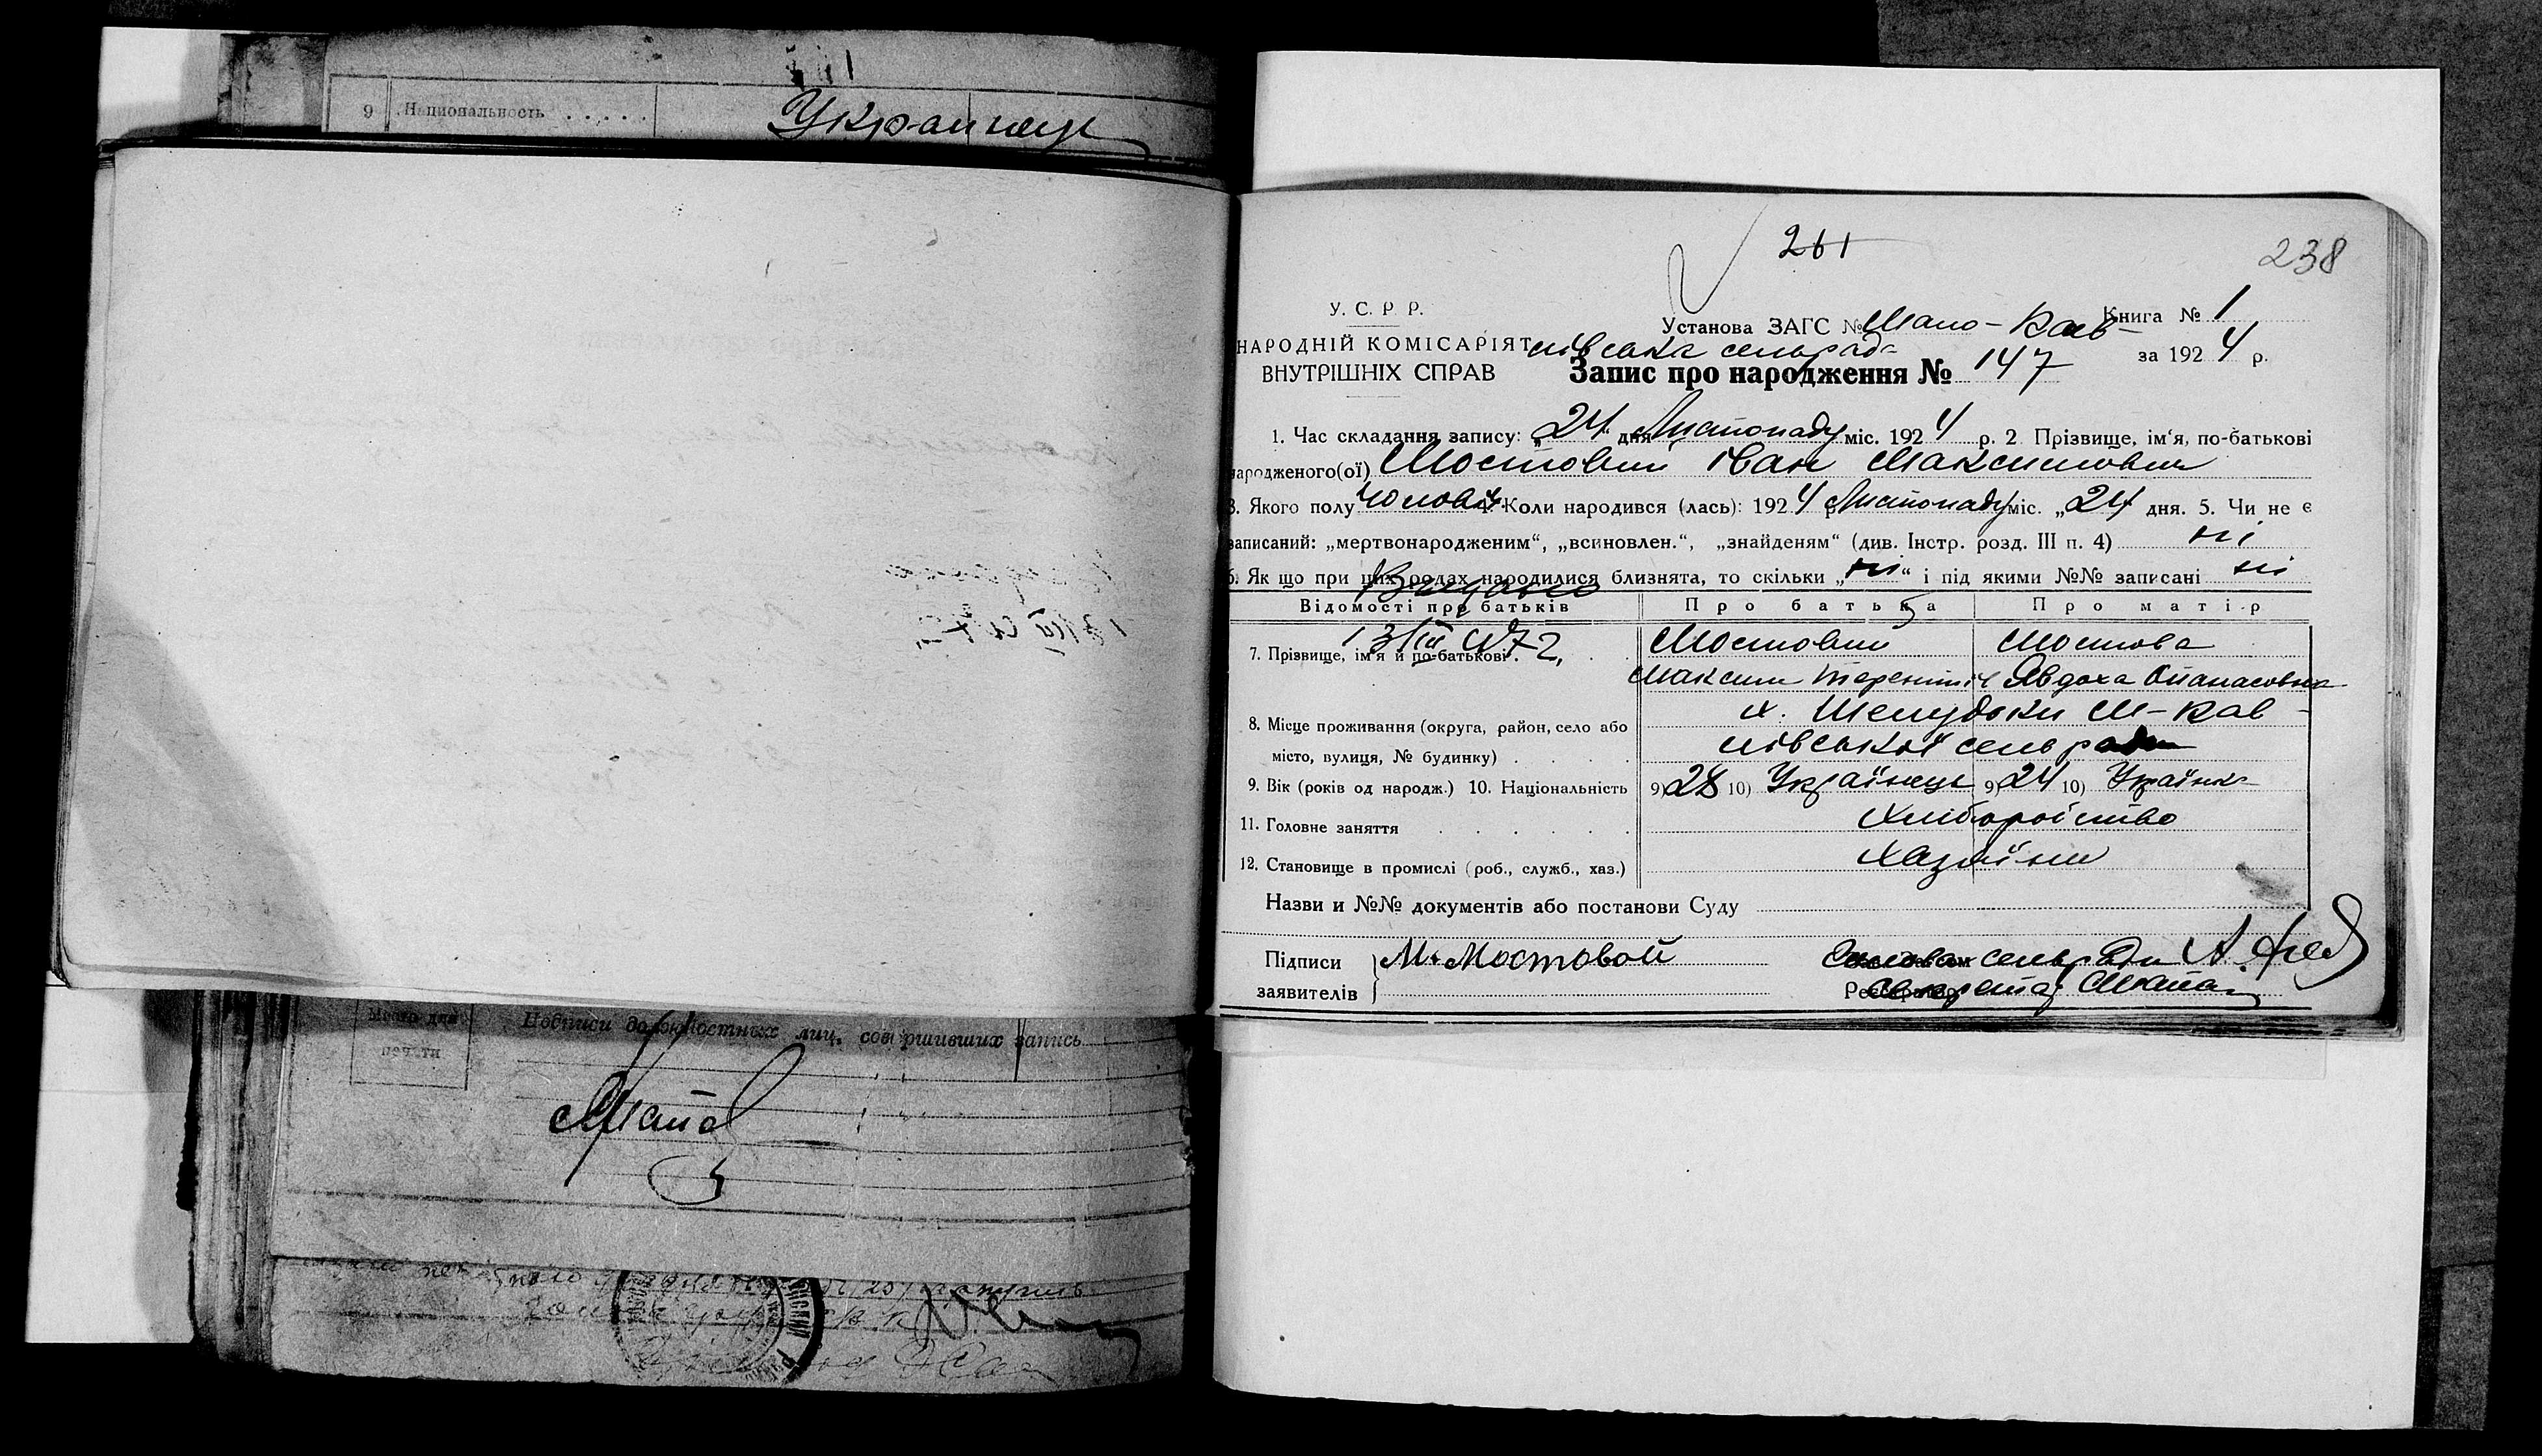 9 Национальность . . . . . Украинец
261
238
У. С. Р. Р.
Установа ЗАГС № Мало-Кав-
Книга № 1
НАРОДНІЙ КОМІСАРІЯТ
лівська сельрада
за 1924 р.
ВНУТРІШНІХ СПРАВ
Запис про народження № 147
1. Час складання запису: „24“ дня Листопаду міс. 1924 р. 2 Прізвище, ім‘я, по-батькові
народженого(ої) Мостовий Іван Максимович
3. Якого полу чолов. 4. Коли народився (лась): 1924 р. Листопаду міс. „24 дня. 5. Чи не є
записаний: „мертвонародженим“, „всиновлен.“, „знайденям“ (див. Інстр. розд. III п. 4) ні
6. Як що при цих родах народилися близнята, то скільки „ні“ і під якими №№ записані ні
Відомості про батьків
Про батька
Про матір
7. Прізвище, ім‘я й по-батькові .
Мостовий
Мостова
Максим Терентіє
Явдоха Опанасовна
8. Місце проживання (округа, район, село або
місто, вулиця, № будинку) . . . .
х. Шелудьки М-Кав-
лівської сельради
9. Вік (років од народж.) 10. Національність
9) 28 10) Українець
9) 24 10) Українка
11. Головне заняття . . . . . .
Хліборобство
12. Становище в промислі (роб., служб., хаз.)
Хазяїни
Назви и №№ документів або постанови Суду
Підписи
заявителів
М. Мостовой
Голова сельради А.
Секретар
Место для
печати
Подписи должностных лиц, совершивших запись